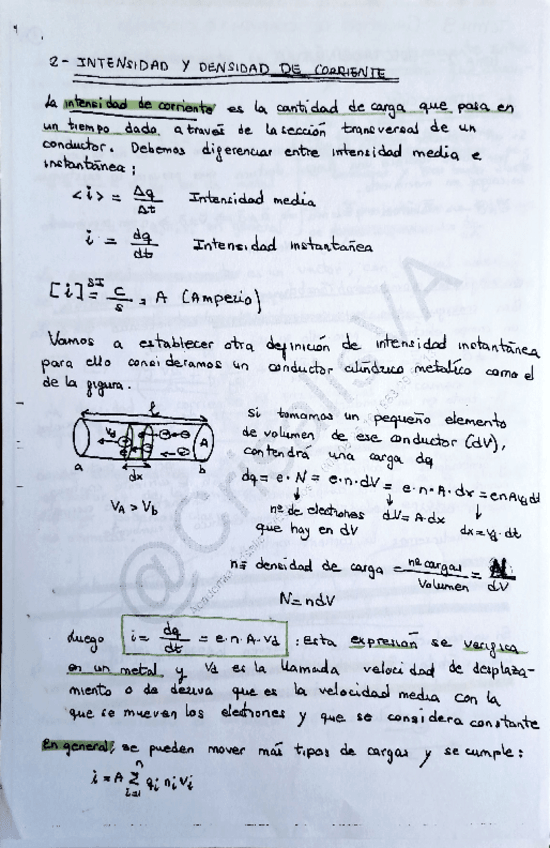 2- INTENSIDAD Y DENSIDAD DE CORRIENTE
La intensidad de corriente es la cantidad de carga que pasa en
un tiempo dado a través de la sección transversal de un
conductor. Debemos diferenciar entre intensidad media e
instantánea:
<i> = Δq/Δt Intensidad media
i = dq/dt Intensidad instantánea
[i] =^SI C/s = A (Amperio)
Vamos a establecer otra definición de intensidad instantánea
para ello consideramos un conductor cilíndrico metalico como el
de la figura.
l
Vd
A
a dx b
VA > Vb
Si tomamos un pequeño elemento
de volumen de ese conductor (dV),
contendrá una carga dq
dq = e·N = e·n·dV = e·n·A·dx = enAVd dt
nº de electrones dV = A·dx dx = Vd·dt
que hay en dV
n ≡ densidad de carga = nº cargas/Volumen = N/dV
N = ndV
Luego i = dq/dt = e·n·A·Vd : esta expresión se verifica
en un metal y Vd es la llamada velocidad de desplaza-
miento o de deriva que es la velocidad media con la
que se mueven los electrones y que se considera constante
En general, se pueden mover más tipos de cargas y se cumple:
i = A Σ(i=1→n) qi ni Vi
@CrisalisVA